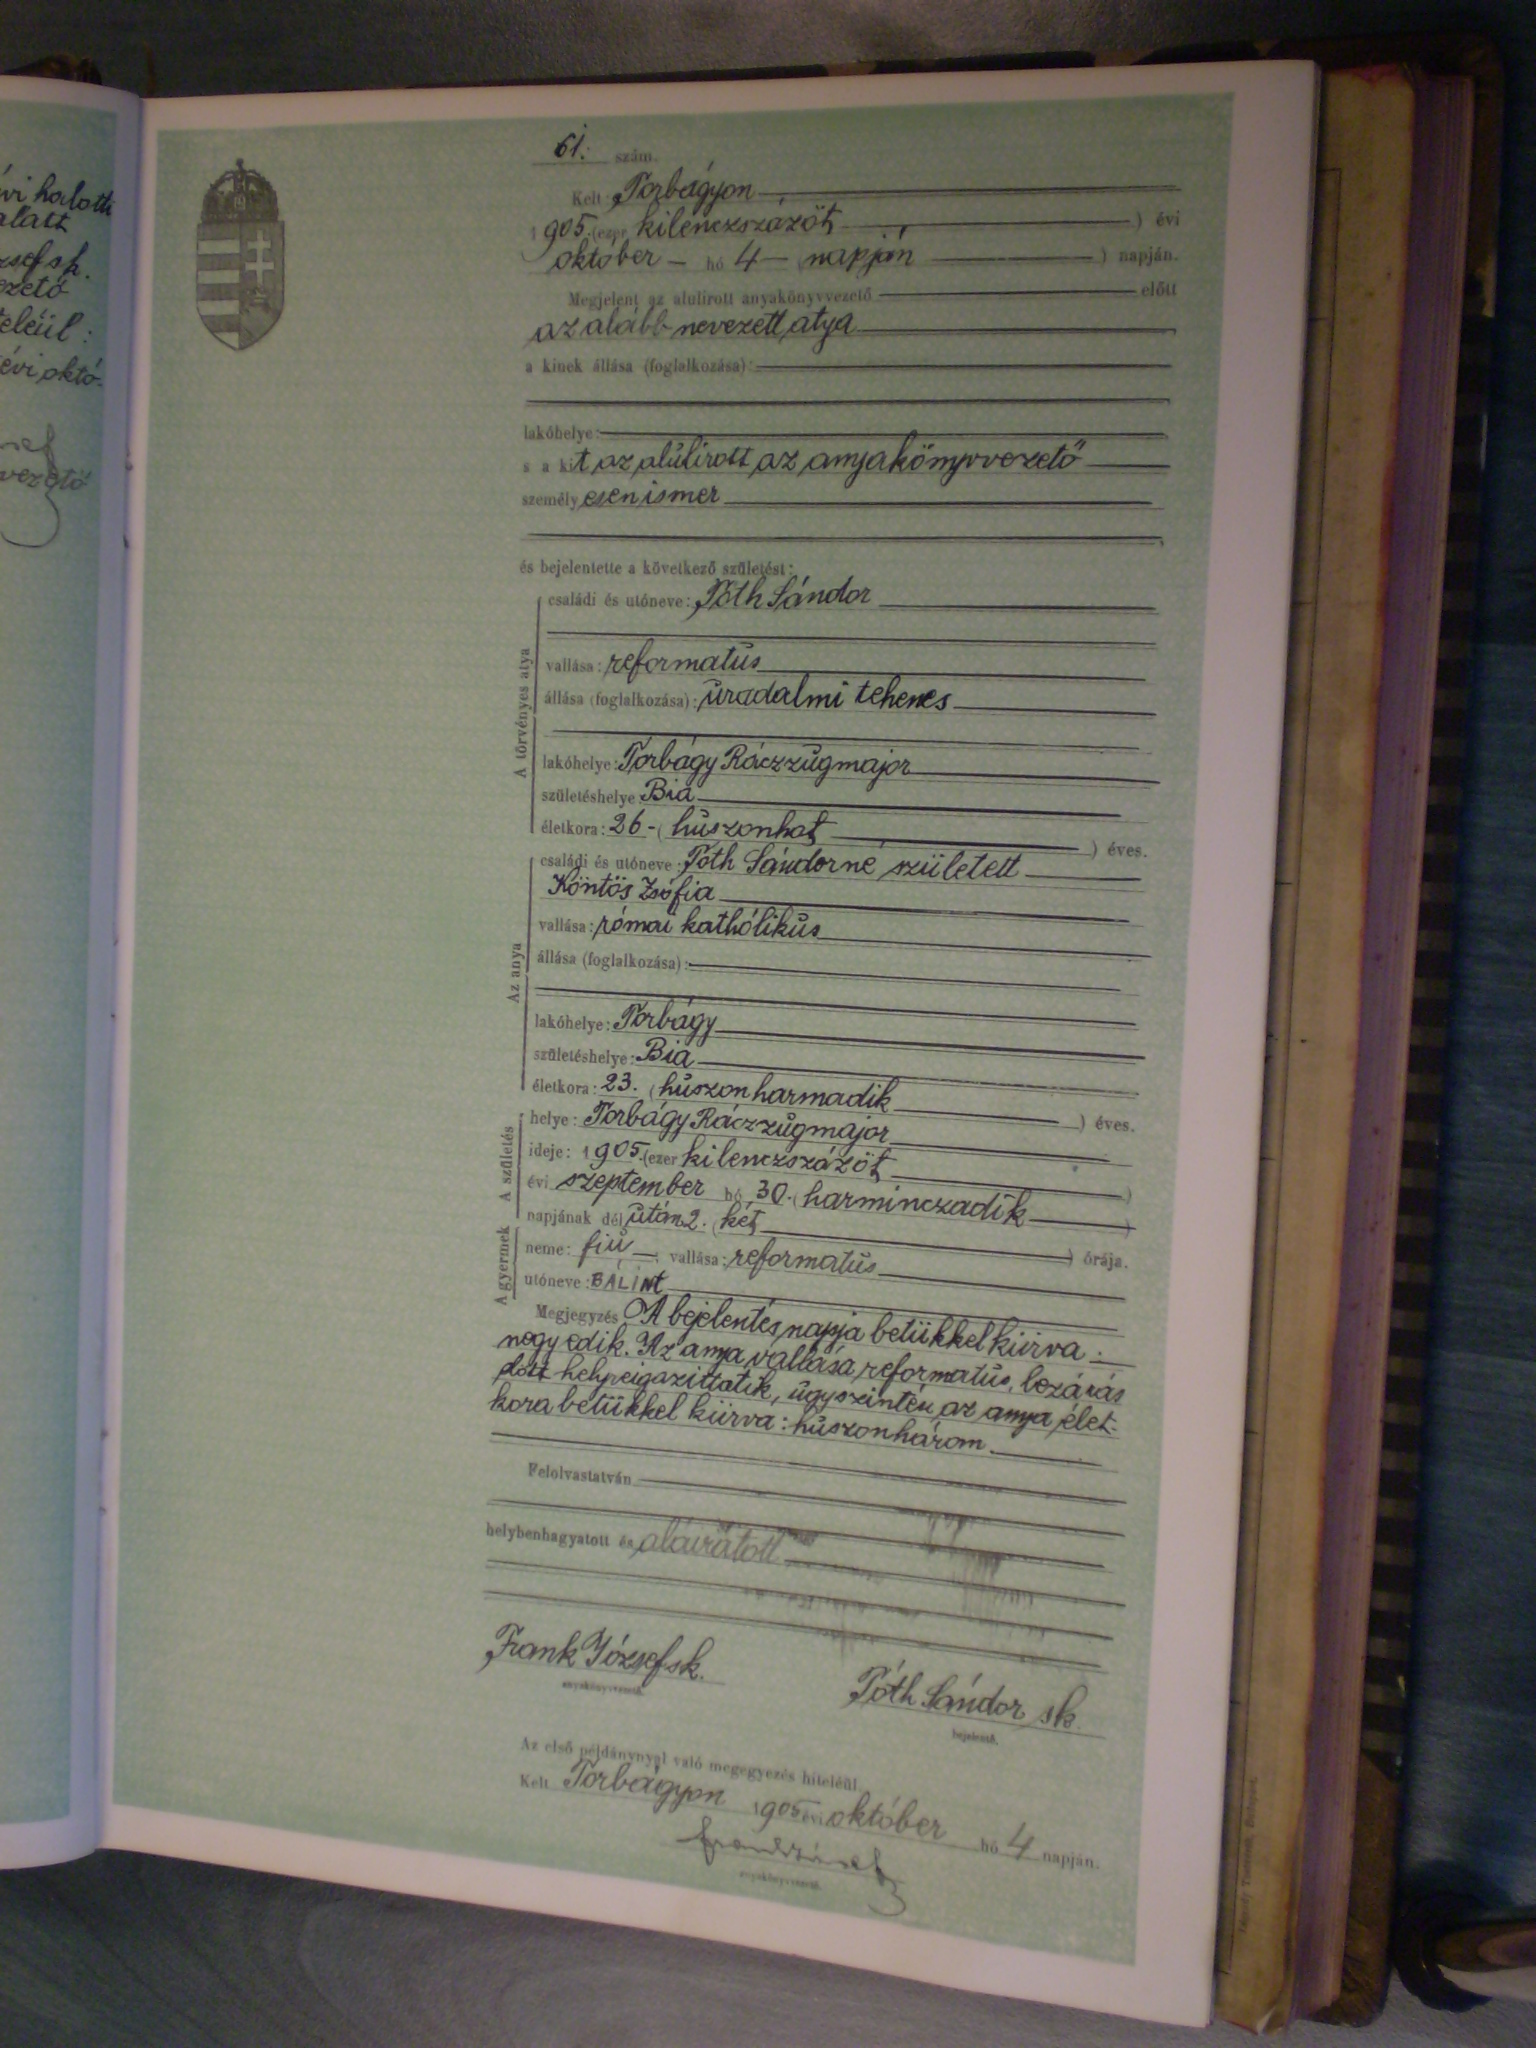 vi halotti
alatt
zsef sk.
ezető
teléül:
évi októ-
vezető
61. szám.
Kelt: Torbágyon
1905. (ezer kilenczszázöt) évi
október hó 4 (napján) napján.
Megjelent az alulirott anyakönyvvezető előtt
az alább nevezett atya
a kinek állása (foglalkozása):
lakóhelye:
s a kit az alúlirott az anyakönyvvezető
személyesen ismer
és bejelentette a következő születést:
A törvényes atya
családi és utóneve: Tóth Sándor
vallása: református
állása (foglalkozása): uradalmi tehenes
lakóhelye: Torbágy Ráczzugmajor
születéshelye Bia
életkora: 26 - (huszonhat) éves.
Az anya
családi és utóneve: Tóth Sándorné született
Köntös Zsófia
vallása: római kathólikus
állása (foglalkozása):
lakóhelye: Torbágy
születéshelye: Bia
életkora: 23. (huszonharmadik) éves.
A születés
helye: Torbágy Ráczzugmajor
ideje: 1905. (ezer kilenczszázöt)
évi szeptember hó 30. (harminczadik)
napjának dél után 2. (két) órája.
A gyermek
neme: fiu vallása: református
utóneve: BÁLINt
Megjegyzés A bejelentés napja betükkel kiirva:
negyedik. Az anya vallása református, lezárás
előtt helyreigazittatik, ugyszintén az anya élet-
kora betükkel kiirva: huszonhárom
Felolvastatván
helybenhagyatott és aláiratott
Frank József sk.
anyakönyvvezető.
Tóth Sándor sk.
bejelentő.
Az első példánynyal való megegyezés hiteléül
Kelt Torbágyon 1905 évi október hó 4 napján.
Frank József
anyakönyvvezető.